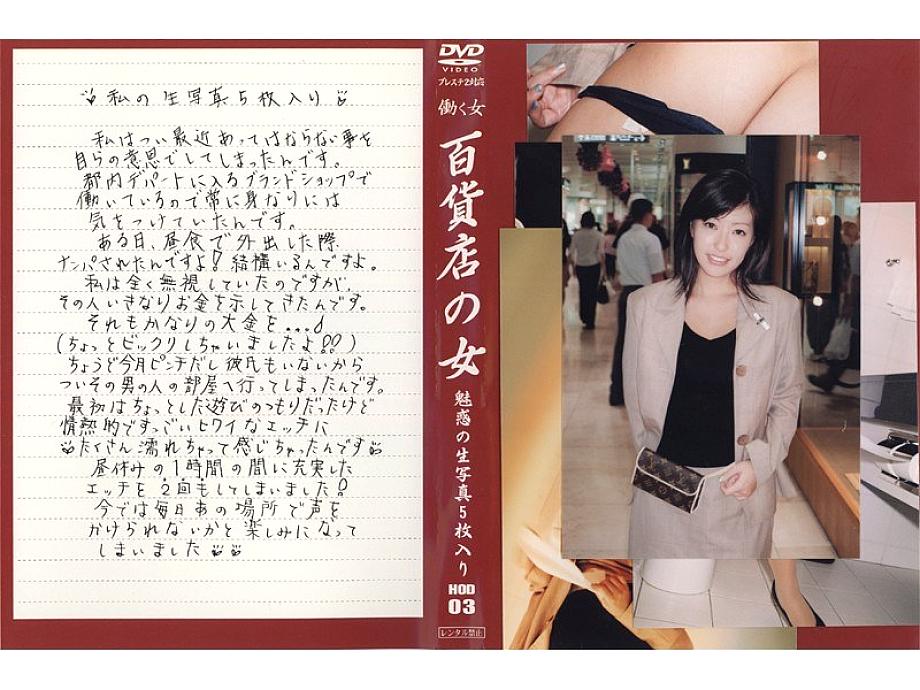 私の生写真5枚入り
私はつい最近あってはならない事を
自らの意思でしてしまったんです。
都内デパートに入るブランドショップで
働いているので常に身なりには
気をつけていたんです。
ある日、昼食で外出した際、
ナンパされたんですよ!結構いるんですよ。
私は全く無視していたのですが、
その人いきなりお金を示してきたんです。
それもかなりの大金を...♪
(ちょっとビックリしちゃいましたよ!!)
ちょうど今月ピンチだし彼氏もいないから
ついその男の人の部屋へ行ってしまったんです。
最初はちょっとした遊びのつもりだったけど
情熱的ですっごいヒワイなエッチに
たくさん濡れちゃって感じちゃったんです
昼休みの1時間の間に充実した
エッチを2回もしてしまいました!
今では毎日あの場所で声を
かけられないかと楽しみになって
しまいました
DVD
VIDEO
プレステ2対応
働く女
百貨店の女
魅惑の生写真5枚入り
HOD
03
レンタル禁止